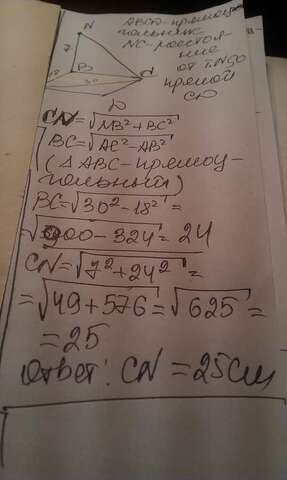 ABCD-прямоу-
гольник
NC-расстоя-
ние
от т.N до
прямой
CD
N
7
B
30
C
D
CN=√NB²+BC²
BC=√AC²-AB²
(△ABC-прямоу-
гольный)
BC=√30²-18²=
√900-324=24
CN=√7²+24²=
=√49+576=√625=
=25
Ответ: CN=25см